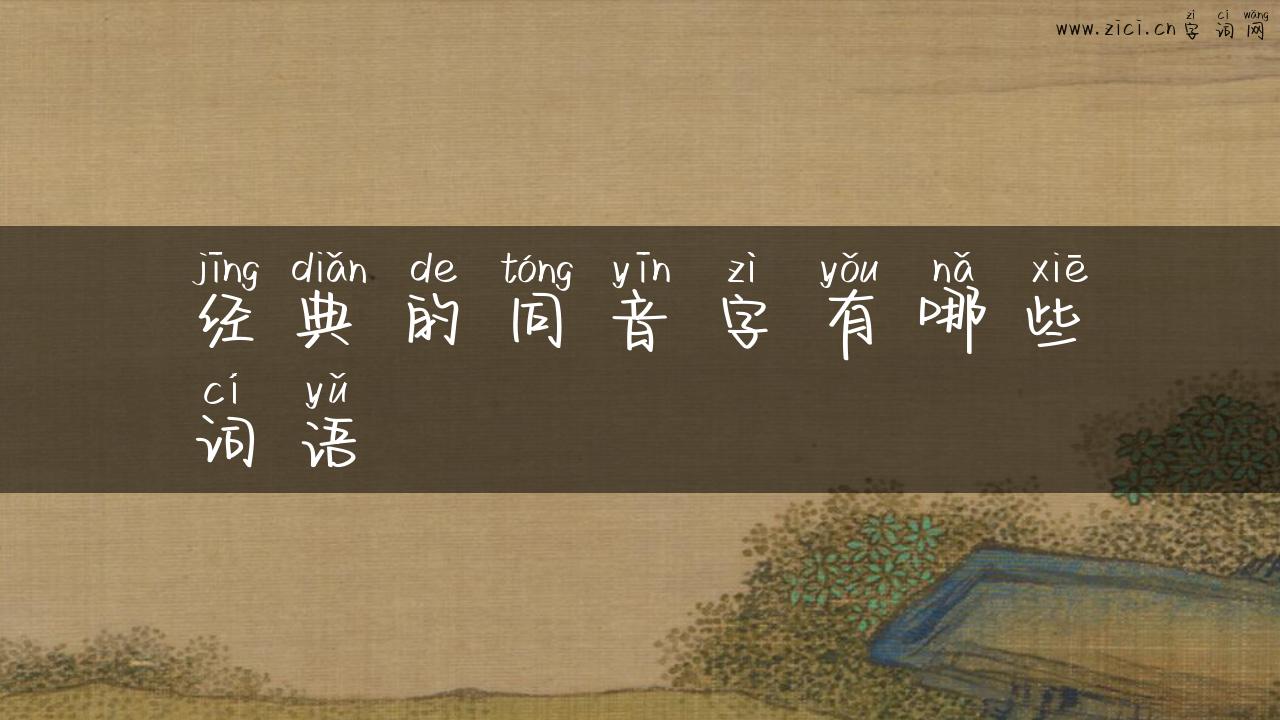 zì cí wǎng
www.zici.cn 字词网
jīng diǎn de tóng yīn zì yǒu nǎ xiē
经典的同音字有哪些
cí yǔ
词语